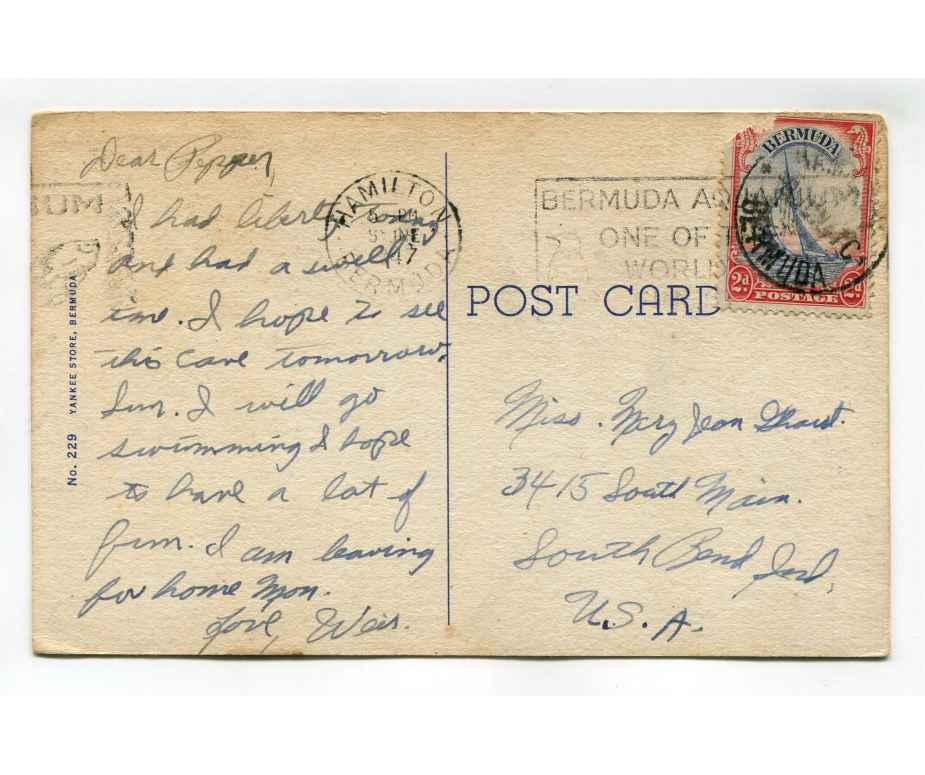 Dear Pepper,
I had liberty
and had a swell
time. I hope to see
this cave tomorrow.
Sun. I will go
swimming I hope
to have a lot of
fun. I am leaving
for home Mon.
Love,
No. 229 YANKEE STORE, BERMUDA
IUM
HAMILTO
5 PM
9 JNE
47
BERMUDA
BERMUDA AQ ARIUM
ONE OF
WORL
BERMUDA
BERMUDA
2d POSTAGE 2d
POST CARD
Miss. Mary Jean
3415 South Main.
South Bend Ind,
U.S.A.